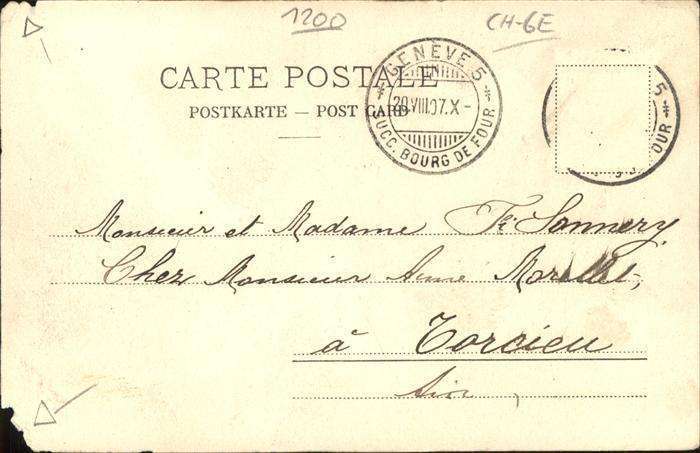 1200
CH-GE
CARTE POSTALE
POSTKARTE — POST CARD
GENÈVE 5
20.VIII.07.X-
SUCC. BOURG DE FOUR.
5
OUR
Monsieur et Madame Fr. Sonnery,
Chez Monsieur Aimé Morellet,
à Torcieu
Ain